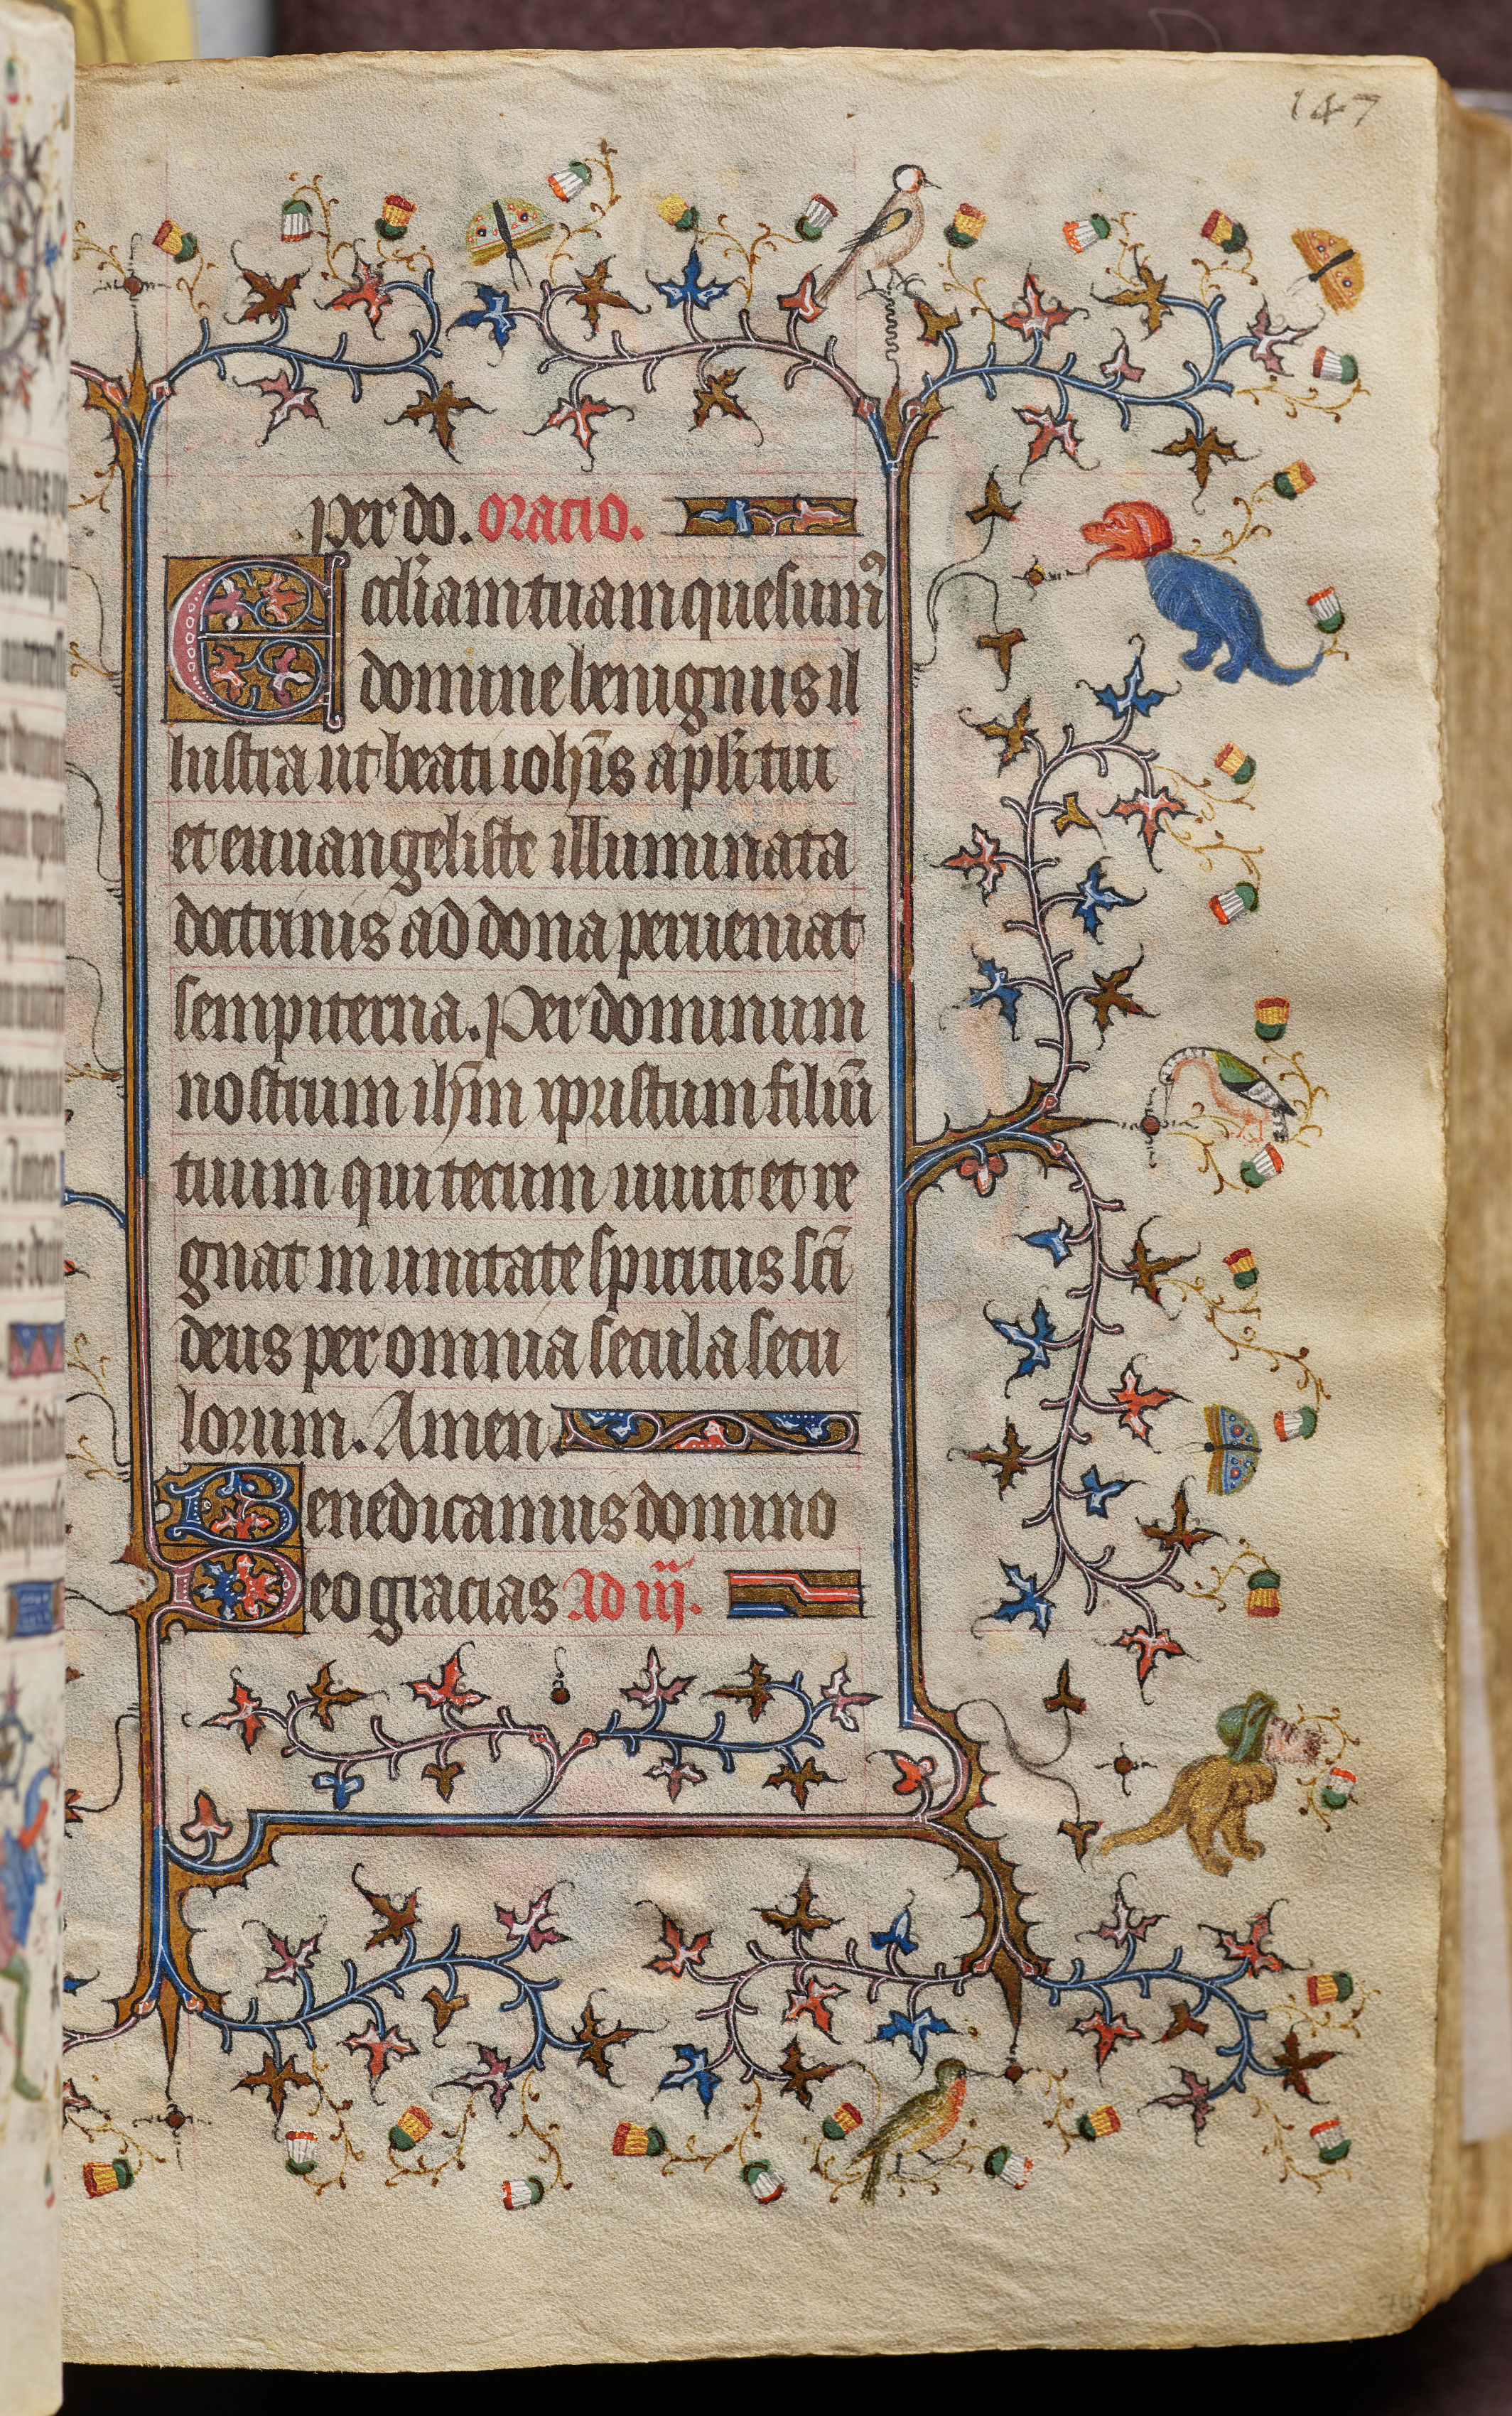 147
per do. oracio.
Eccl̄iam tuam quesumꝰ
domine benignus il
lustra ut beati ioh̄is apl̄i tui
et euuangeliste illuminata
doctrinis ad dona perueniat
sempiterna. Per dominum
nostrum ih̄m xpristum filiū
tuum qui tecum uiuit et re
gnat in unitate spiritus sc̄i
deus per omnia secula secu
lorum. Amen.
Benedicamus domino
Deo gracias Ad iij.